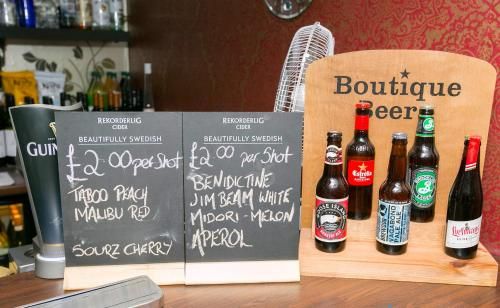 GUIN
REKORDERLIG
CIDER
BEAUTIFULLY SWEDISH
£2.00 per Shot
TABOO PEACH
MALIBU RED
SOURZ CHERRY
REKORDERLIG
CIDER
BEAUTIFULLY SWEDISH
£2.00 per Shot
BENIDICTINE
JIM BEAM WHITE
MIDORI - MELON
APEROL
Boutique
Beers
GOOSE ISLAND
Estrella
Liefmans